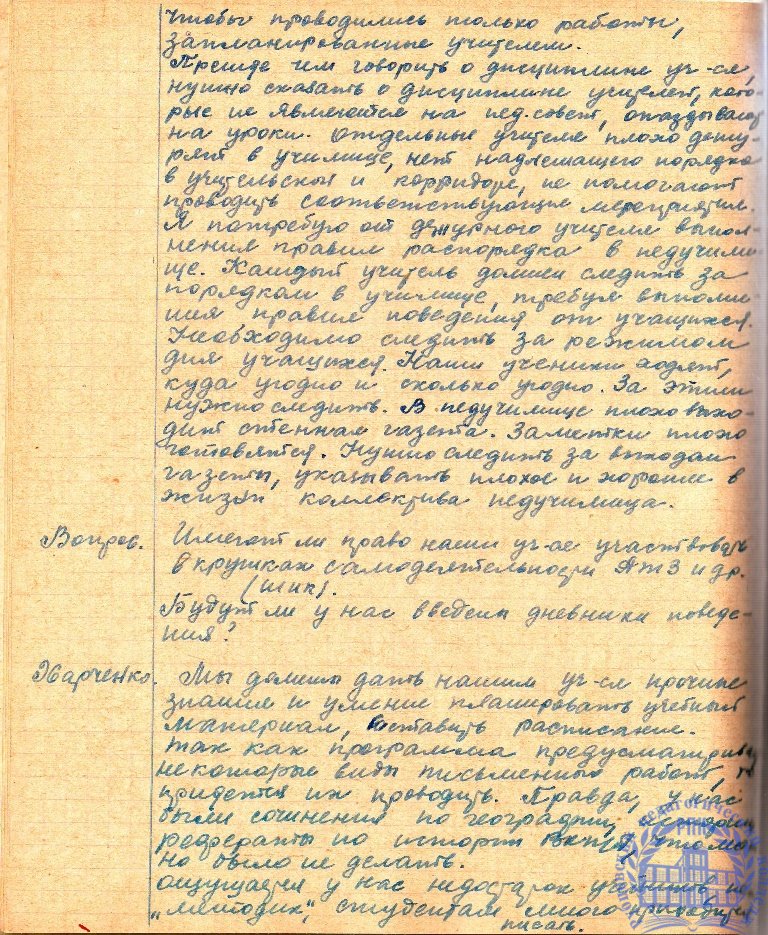 чтобы проводились только работы,
запланированные учителем.
Прежде чем говорить о дисциплине уч-ся,
нужно сказать о дисциплине учителей, кото-
рые не являются на пед. совет, опаздывают
на уроки. Отдельные учителя плохо дежу-
рят в училище, нет надлежащего порядка
в учительской и корридоре, не помогают
проводить соответствующие мероприятия.
Я потребую от дежурного учителя выпол-
нения правил распорядка в педучили-
ще. Каждый учитель должен следить за
порядком в училище, требуя выполне-
ния правил поведения от учащихся.
Необходимо следить за режимом
дня учащихся. Наши ученики ходят,
куда угодно и сколько угодно. За этим
нужно следить. В педучилище плохо выхо-
дит стенная газета. Заметки плохо
готовятся. Нужно следить за выходом
газеты, указывать плохое и хорошее в
жизни коллектива педучилища.
Вопрос. Имеют ли право наши уч-ся участвовать
в кружках самодеятельности АТЗ и др.
(Шик).
Будут ли у нас введены дневники поведе-
ния?
Харченко. Мы должны дать нашим уч-ся прочные
знания и умение планировать учебный
материал, составить расписание.
Так как программа предусматривает
некоторые виды письменных работ, то
придется их проводить. Правда, у нас
были сочинения по географии,
рефераты по истории этого мож-
но было не делать.
Ощущается у нас недостаток
"методик", студентам много приходится
писать.